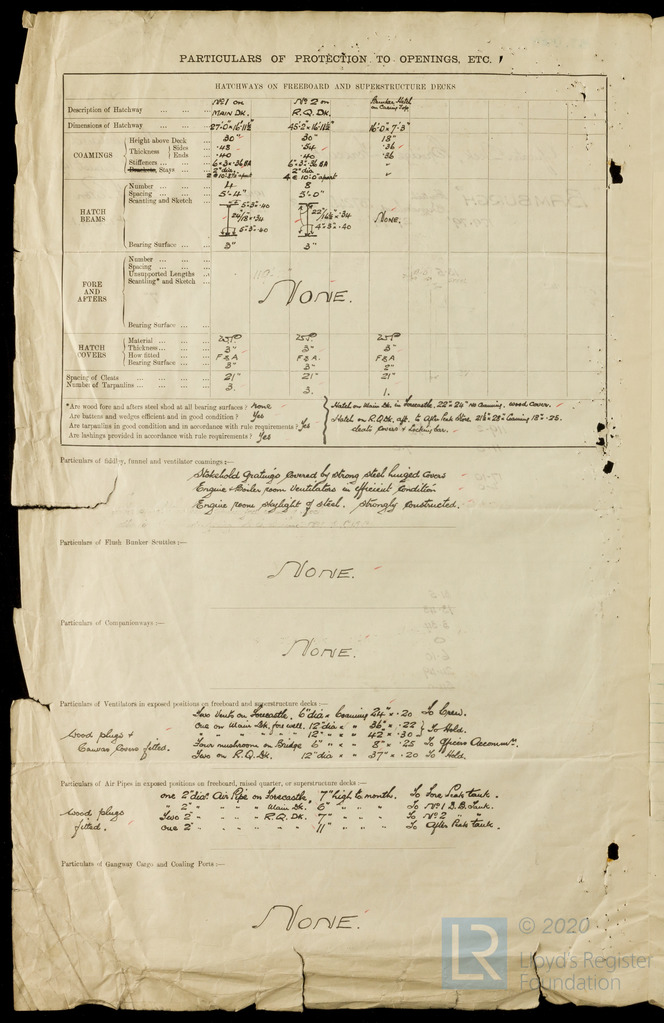 PARTICULARS OF PROTECTION TO OPENINGS, ETC.
HATCHWAYS ON FREEBOARD AND SUPERSTRUCTURE DECKS
Description of Hatchway ... ... ... No 1 on MAIN DK. No 2 on R.Q. DK. Bunker Hatch on Casing Top
Dimensions of Hatchway ... ... ... 27'-0" × 16'-11½" 45'-2" × 16'-11½" 16'-0" × 7'-3"
COAMINGS
Height above Deck ... 30" 30" 18"
Thickness Sides ... .48 .54 .36
Ends ... .40 .40 .36
Stiffeners ... 6 × 3 × .36 BA 6 × 3 × .36 BA
Brackets, Stays ... 2" dia. 2" dia 4 @ 10'-0" apart
HATCH BEAMS
Number ... 4 8
Spacing ... 5'-4" 5'-0"
Scantling and Sketch 5 × 3 × .40 22"/16½" × .34 4 × 3 × .40 NONE.
Bearing Surface ... 3" 3"
FORE AND AFTERS
Number ...
Spacing ...
Unsupported Lengths ...
Scantling* and Sketch ...
NONE.
Bearing Surface ...
HATCH COVERS
Material ... W.P. W.P. W.P.
Thickness ... 3" 3" 3"
How fitted ... F & A F & A. F & A
Bearing Surface ... 3" 3" 2"
Spacing of Cleats ... 21" 21" 21"
Number of Tarpaulins ... 3. 3. 1.
*Are wood fore and afters steel shod at all bearing surfaces? none
Are battens and wedges efficient and in good condition? Yes
Are tarpaulins in good condition and in accordance with rule requirements? Yes
Are lashings provided in accordance with rule requirements? Yes
Hatch on Main Dk. in Forecastle, 22" × 24" no Coaming, wood cover.
Hatch on R.Q. Dk. aft. to After Peak Store. 21½" × 28" Coaming 18" × .25.
cleats covers & Locking bar.
Particulars of fiddley, funnel and ventilator coamings:—
Stokehold Gratings covered by strong steel hinged covers
Engine & Boiler room Ventilators in efficient condition
Engine room skylight of steel. Strongly constructed.
Particulars of Flush Bunker Scuttles:—
NONE.
Particulars of Companionways:—
NONE.
Particulars of Ventilators in exposed positions on freeboard and superstructure decks:—
Two Vents on Forecastle, 6" dia × Coaming 24" × .20 To Crew.
One on Main Dk. for'well. 12" dia × " 36" × .22 } To Hold.
" " " " " 12" " × " 42" × .30
Wood plugs & Canvas Covers fitted.
Four mushroom on Bridge 6" " × " 8" × .25 To Officers Accommn.
Two on R.Q. Dk. 12" dia × " 37" × .20 To Hold.
Particulars of Air Pipes in exposed positions on freeboard, raised quarter, or superstructure decks:—
one 2" dia. Air Pipe on Forecastle, 7" high to mouth. To Fore Peak tank.
" 2" " " " Main Dk. 6" " " " To No 1 D.B. Tank.
Wood plugs fitted.
Two 2" " " " R.Q. Dk. 7" " " " To No 2 " "
one 2" " " " " 11" " " " To After Peak tank.
Particulars of Gangway Cargo and Coaling Ports:—
NONE.
LR
© 2020
Lloyd's Register
Foundation